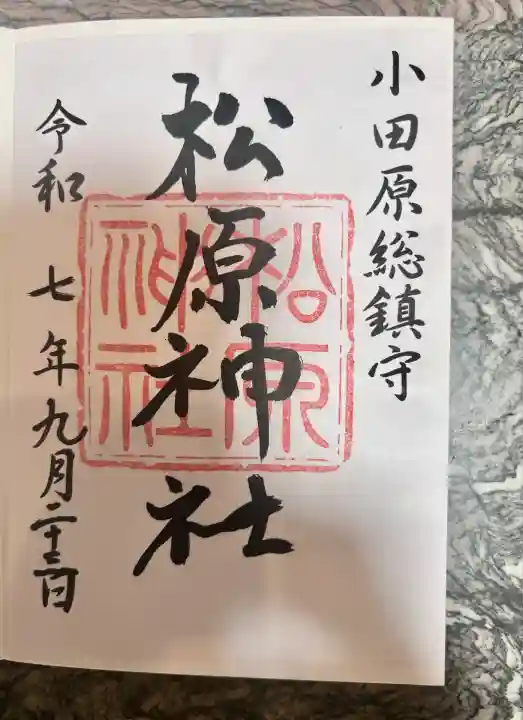 小田原総鎮守
松原神社
松原神社
令和七年九月二十二日